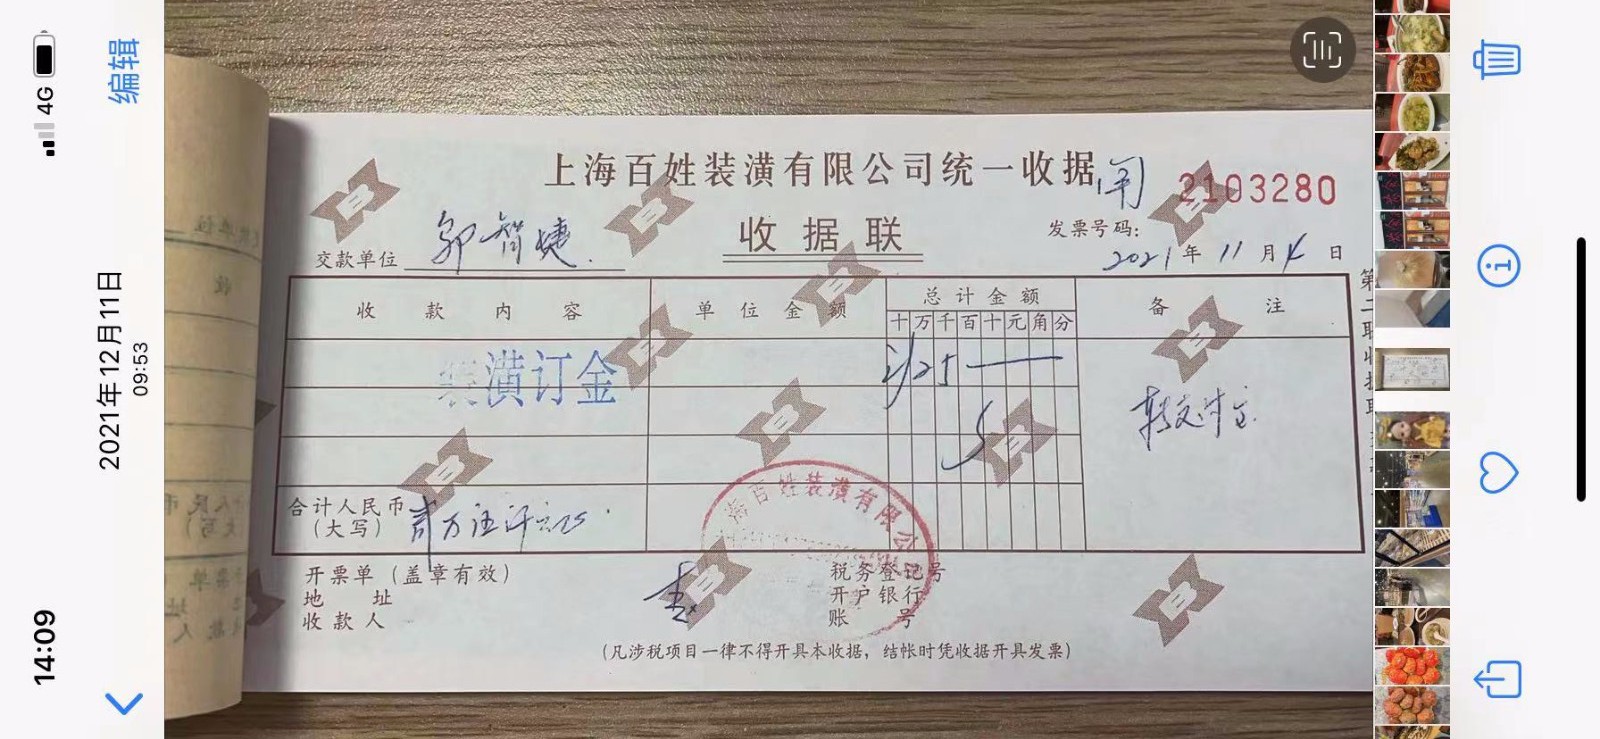 14:09
4G
编辑
2021年12月11日
09:53
上海百姓装潢有限公司统一收据
2103280
收据联
发票号码：
交款单位 邹智捷
2021年11月4日
收款内容
单位金额
总计金额
备注
十万千百十元角分
装潢订金
转支付宝
合计人民币
（大写）
开票单（盖章有效）
地址
收款人
税务登记号
开户银行
账号
（凡涉税项目一律不得开具本收据，结帐时凭收据开具发票）